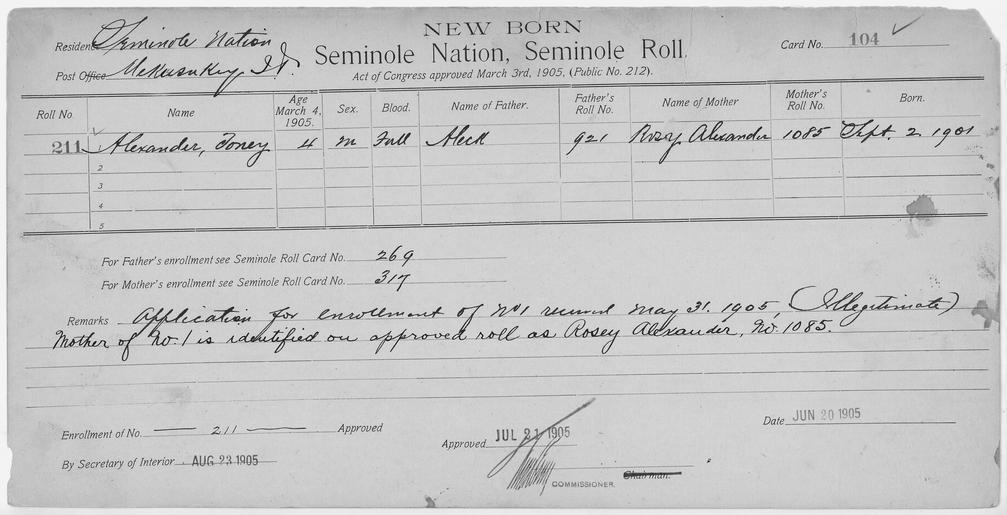 NEW BORN
Residence Seminole Nation
Seminole Nation, Seminole Roll.
Card No. 104
Post Office Mekusukey, I.T.
Act of Congress approved March 3rd, 1905, (Public No. 212).
Roll No. Name Age March 4, 1905. Sex. Blood. Name of Father. Father's Roll No. Name of Mother Mother's Roll No. Born.
211 Alexander, Toney 4 M Full Aleck 921 Rosey Alexander 1085 Sept. 2 1901
2
3
4
5
For Father's enrollment see Seminole Roll Card No. 269
For Mother's enrollment see Seminole Roll Card No. 317
Remarks Application for enrollment of No 1 received May 31. 1905, (Illegitimate)
Mother of No. 1 is identified on approved roll as Rosey Alexander, No. 1085.
Date JUN 20 1905
Enrollment of No. 211 Approved
Approved JUL 21 1905
By Secretary of Interior AUG 23 1905
Chairman.
COMMISSIONER.